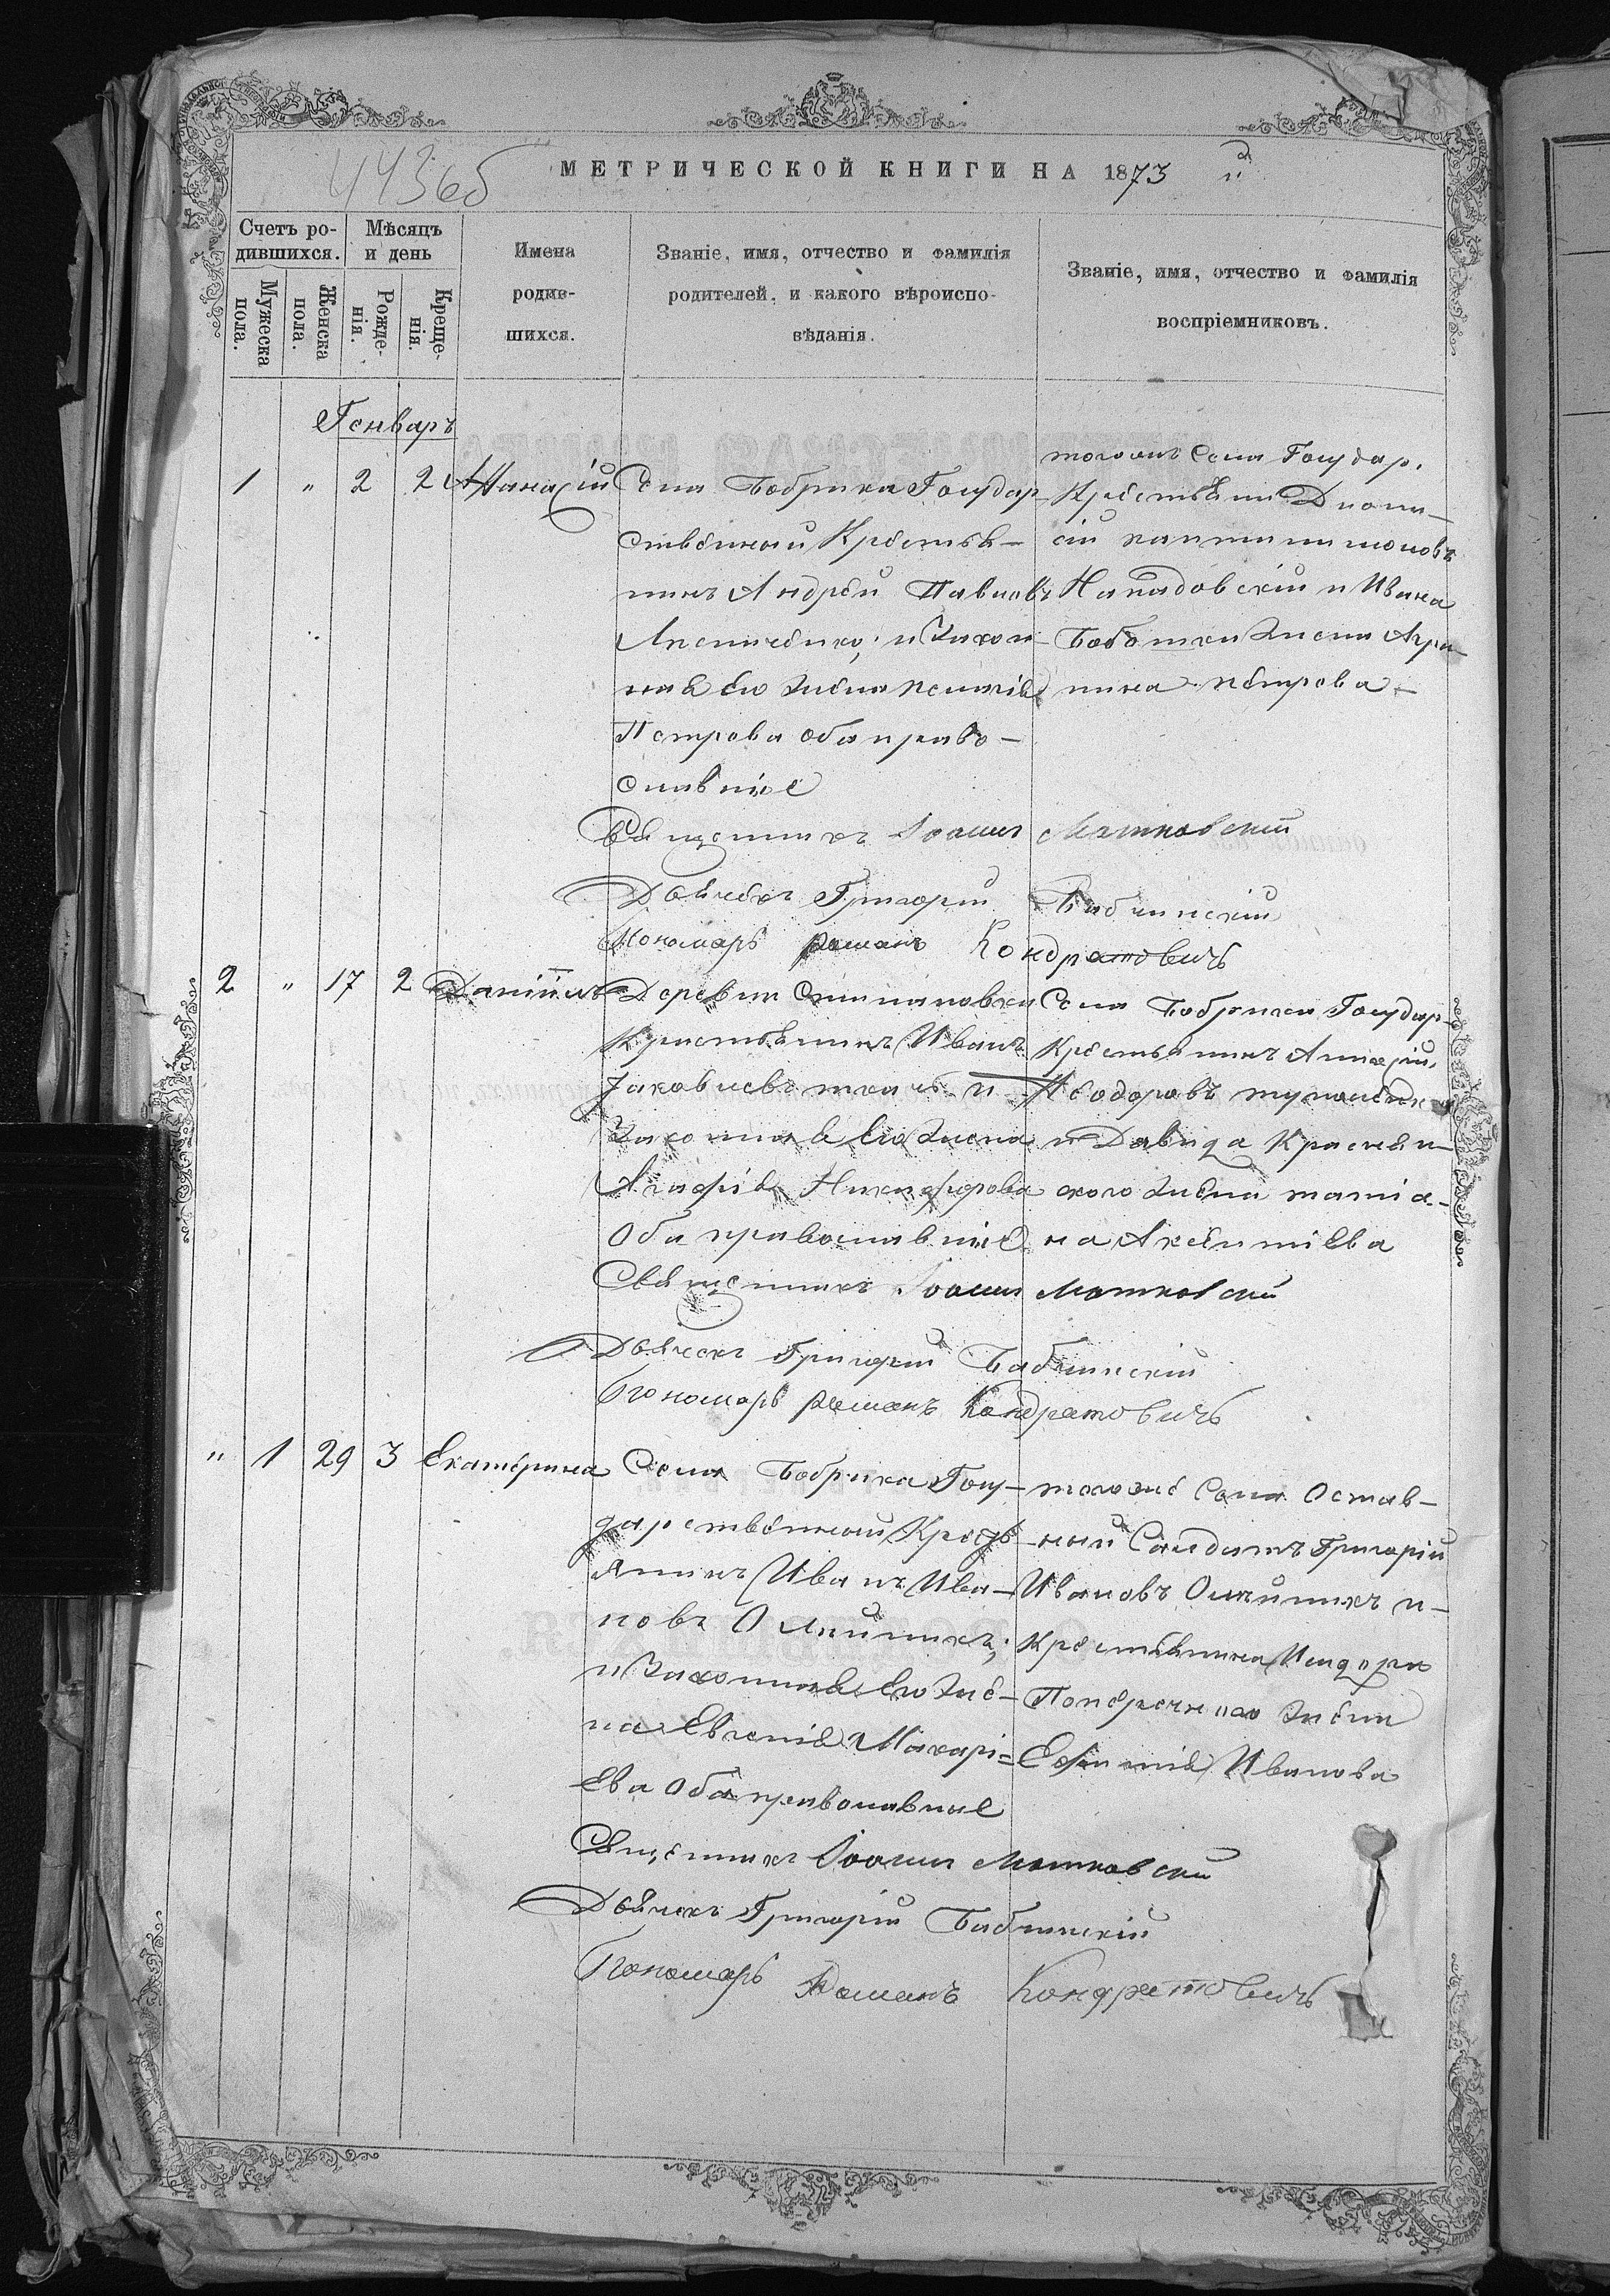 МЕТРИЧЕСКОЙ КНИГИ НА 1873
443об
Счетъ ро-
дившихся.
Мужеска
пола.
Женска
пола.
Мѣсяцъ
и день
Рожде-
нія.
Креще-
нія.
Имена
родив-
шихся.
Званіе, имя, отчество и фамилія
родителей, и какого вѣроиспо-
вѣданія.
Званіе, имя, отчество и фамилія
воспріемниковъ.
Генварь
1 " 2 2 Афанасій
Села Бобрика Государ
ственный Крестья-
нинъ Андрей Павловъ
и Закон-
ная его жена
Петрова оба право-
славніе
тогожъ Села Государ.
Крестьянинъ Діони-
сій
и Ивана
жена Агри-
пина Петрова
Священникъ Іоаннъ Матковскій
Дьячекъ Григорій Бабчинскій
Пономарь Романъ Кондратовичъ
2 " 17 2 Даніилъ
Деревни Степановки
Крестьянинъ Иванъ
Іаковлевъ ткачъ и
Законная его жена
Агафія Никифорова
оба православніе
Села Бобрика Государ-
Крестьянинъ Алексій
Ѳеодоровъ
и Давида Красня-
ского жена татіа-
на Аксентіева
Священникъ Іоаннъ Матковскій
Дьячекъ Григорій Бабчинскій
Пономарь Романъ Кондратовичъ
" 1 29 3 Екатерина
Села Бобрика Госу-
дарственный Кресть
янинъ Иванъ Ива-
новъ Олійникъ;
и Законная его же-
на Евгенія Макарі=
ева оба православные
тогоже Села Остав-
ный Салдатъ Григорій
Ивановъ Олійникъ и-
Крестьянина Исидора
жена
Евфимія Иванова
Священникъ Іоаннъ Матковскій
Дьячекъ Григорій Бабчинскій
Пономарь Романъ Кондратовичъ